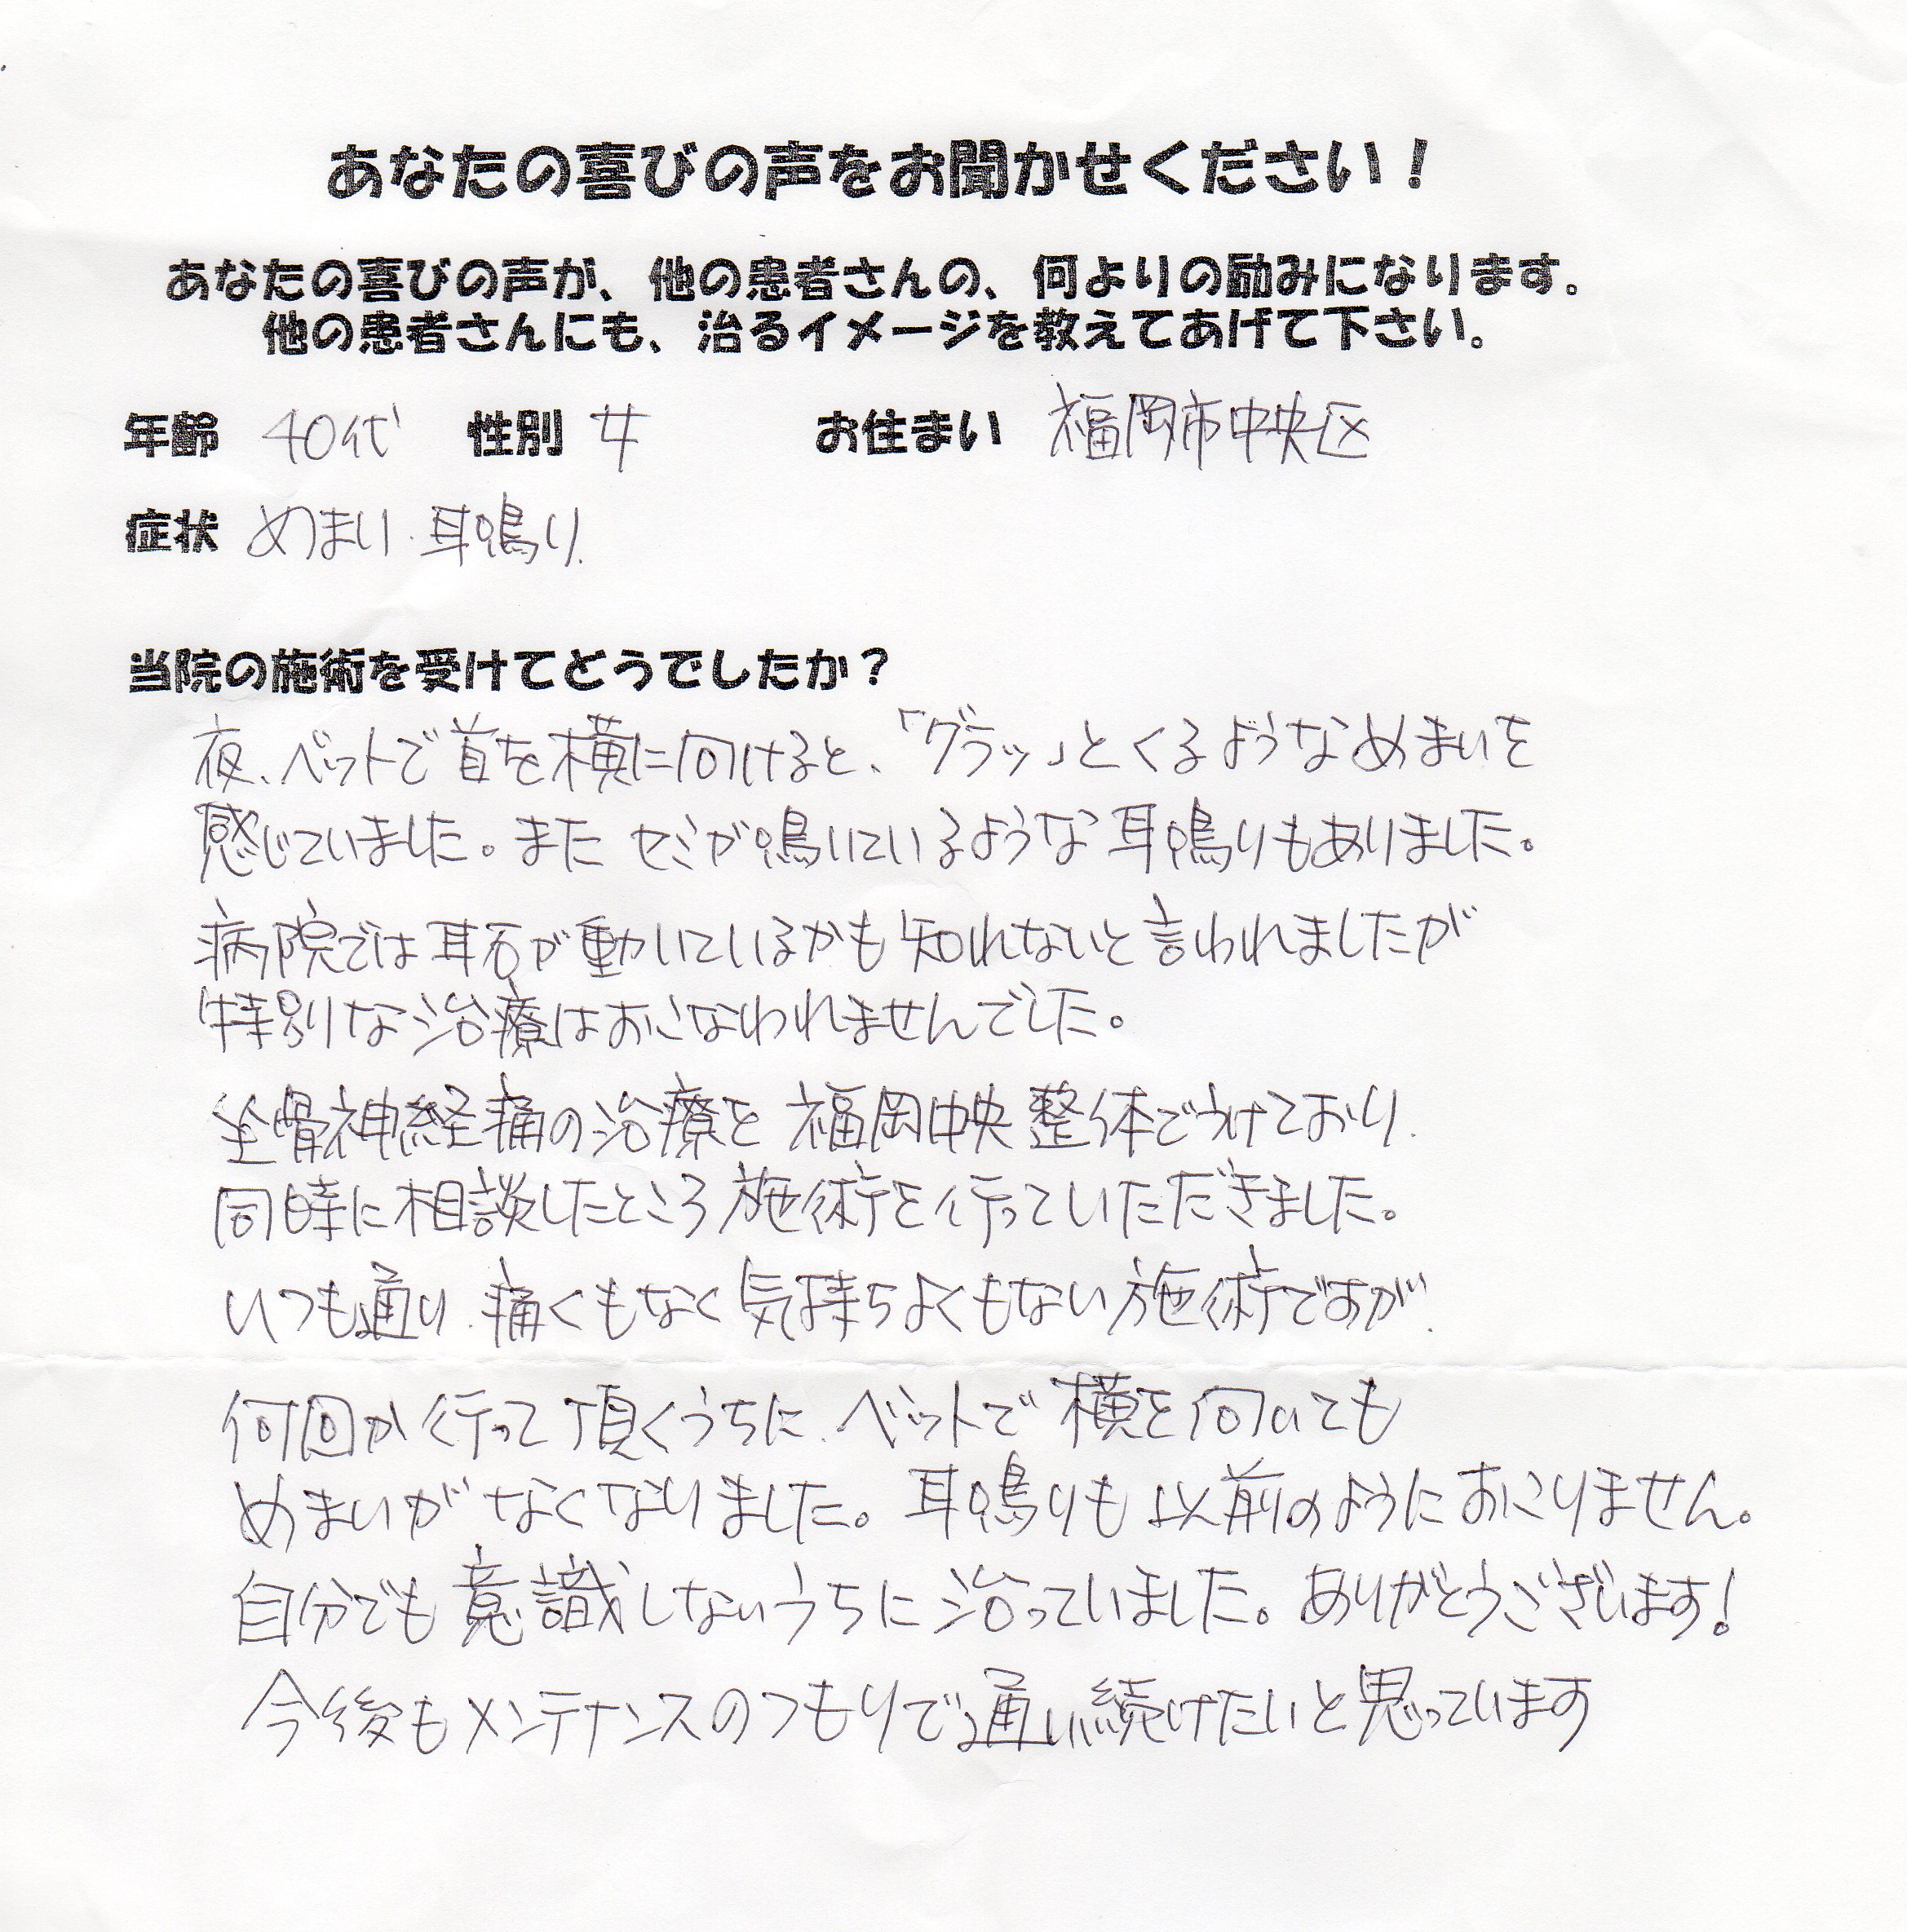 あなたの喜びの声をお聞かせください！
あなたの喜びの声が、他の患者さんの、何よりの励みになります。
他の患者さんにも、治るイメージを教えてあげて下さい。
年齢 40代 性別 女 お住まい 福岡市中央区
症状 めまい・耳鳴り.
当院の施術を受けてどうでしたか？
夜、ベットで首を横に向けると、「グラッ」とくるようなめまいを
感じていました。また セミが鳴いているような耳鳴りもありました。
病院では耳石が動いているかも知れないと言われましたが
特別な治療はおこなわれませんでした。
坐骨神経痛の治療を 福岡中央整体でうけており.
同時に相談したところ施術を行っていただきました。
いつも通り. 痛くもなく気持ちよくもない施術ですが.
何回か行って頂くうちに. ベットで横を向いても
めまいがなくなりました。耳鳴りも以前のようにおこりません。
自分でも意識しないうちに治っていました。ありがとうございます！
今後もメンテナンスのつもりで通い続けたいと思っています